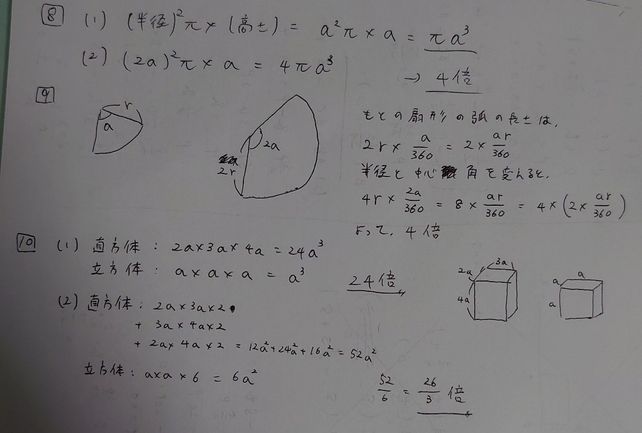 8 (1) (半径)²π × (高さ) = a²π × a = πa³
(2) (2a)²π × a = 4πa³
→ 4倍
9
r
a
2a
2r
もとの扇形の弧の長さは、
2r × a/360 = 2 × ar/360
半径と中心角を変えると、
4r × 2a/360 = 8 × ar/360 = 4 × (2 × ar/360)
よって、4倍
10 (1) 直方体 : 2a×3a×4a = 24a³
立方体 : a × a × a = a³
24倍
2a 3a
4a
a
a
(2) 直方体 : 2a×3a×2
+ 3a×4a×2
+ 2a×4a×2 = 12a²+24a²+16a² = 52a²
立方体 : a×a×6 = 6a²
52/6 = 26/3 倍